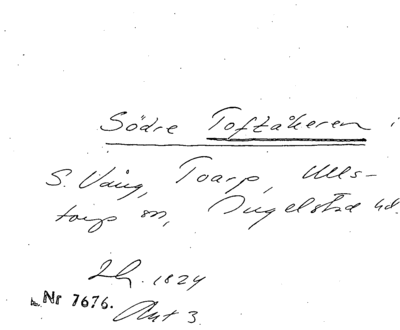 Södre Toftåkeren i
S. Vång, Toarp, Ulls-
torp sn, Ingelstad hd.
1824
Nr 7676. Akt 3